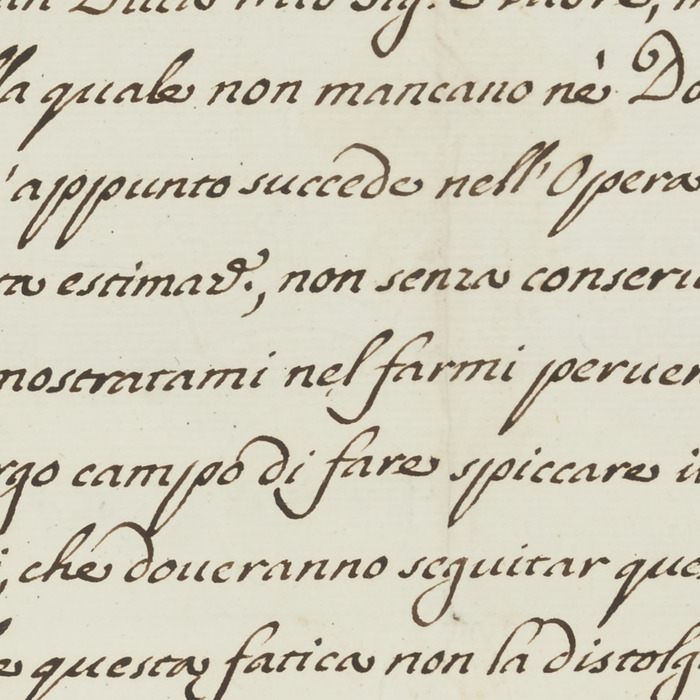 la quale non mancano nè Do
'appunto succede nell'Opera
ta estimaz.e, non senza conseru
mostratami nel farmi peruen
rgo campo di fare spiccare i
i, che doueranno seguitar que
e questa fatica non la distolg